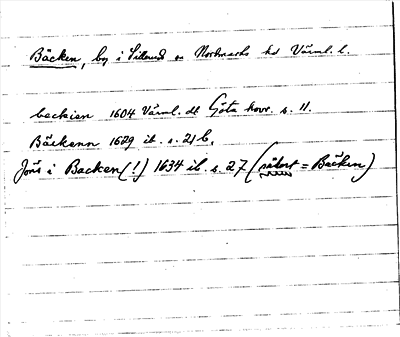 Bäcken, by i Sillerud sn Nordmarks hd Värml. l.
beckien 1604 Värml. dll Göta hovr. s. 11.
Bäckenn 1629 ib. s. 21 b.
Jöns i Backen (!) 1634 ib. s. 27 (säkert = Bäcken)